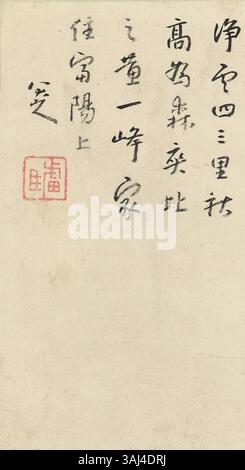 淨雲四三里秋
高為森爽比
之黃一峰家
住富陽上
八大
alamy
Image ID: 3AJ4DRJ
www.alamy.com